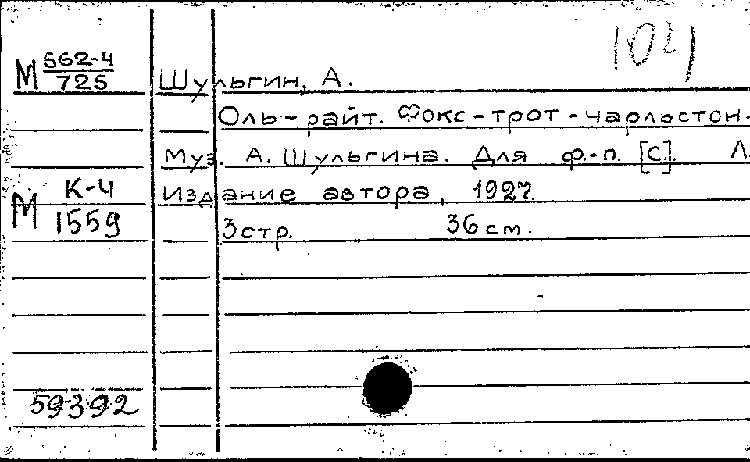 102)
М 562-4
725
Шульгин, А.
Оль-райт. Фокс-трот-чарльстон.
Муз. А. Шульгина. Для ф.-п. [С]. Л.
К-4
Издание автора, 1927.
М 1559
3 стр. 36 см.
59392